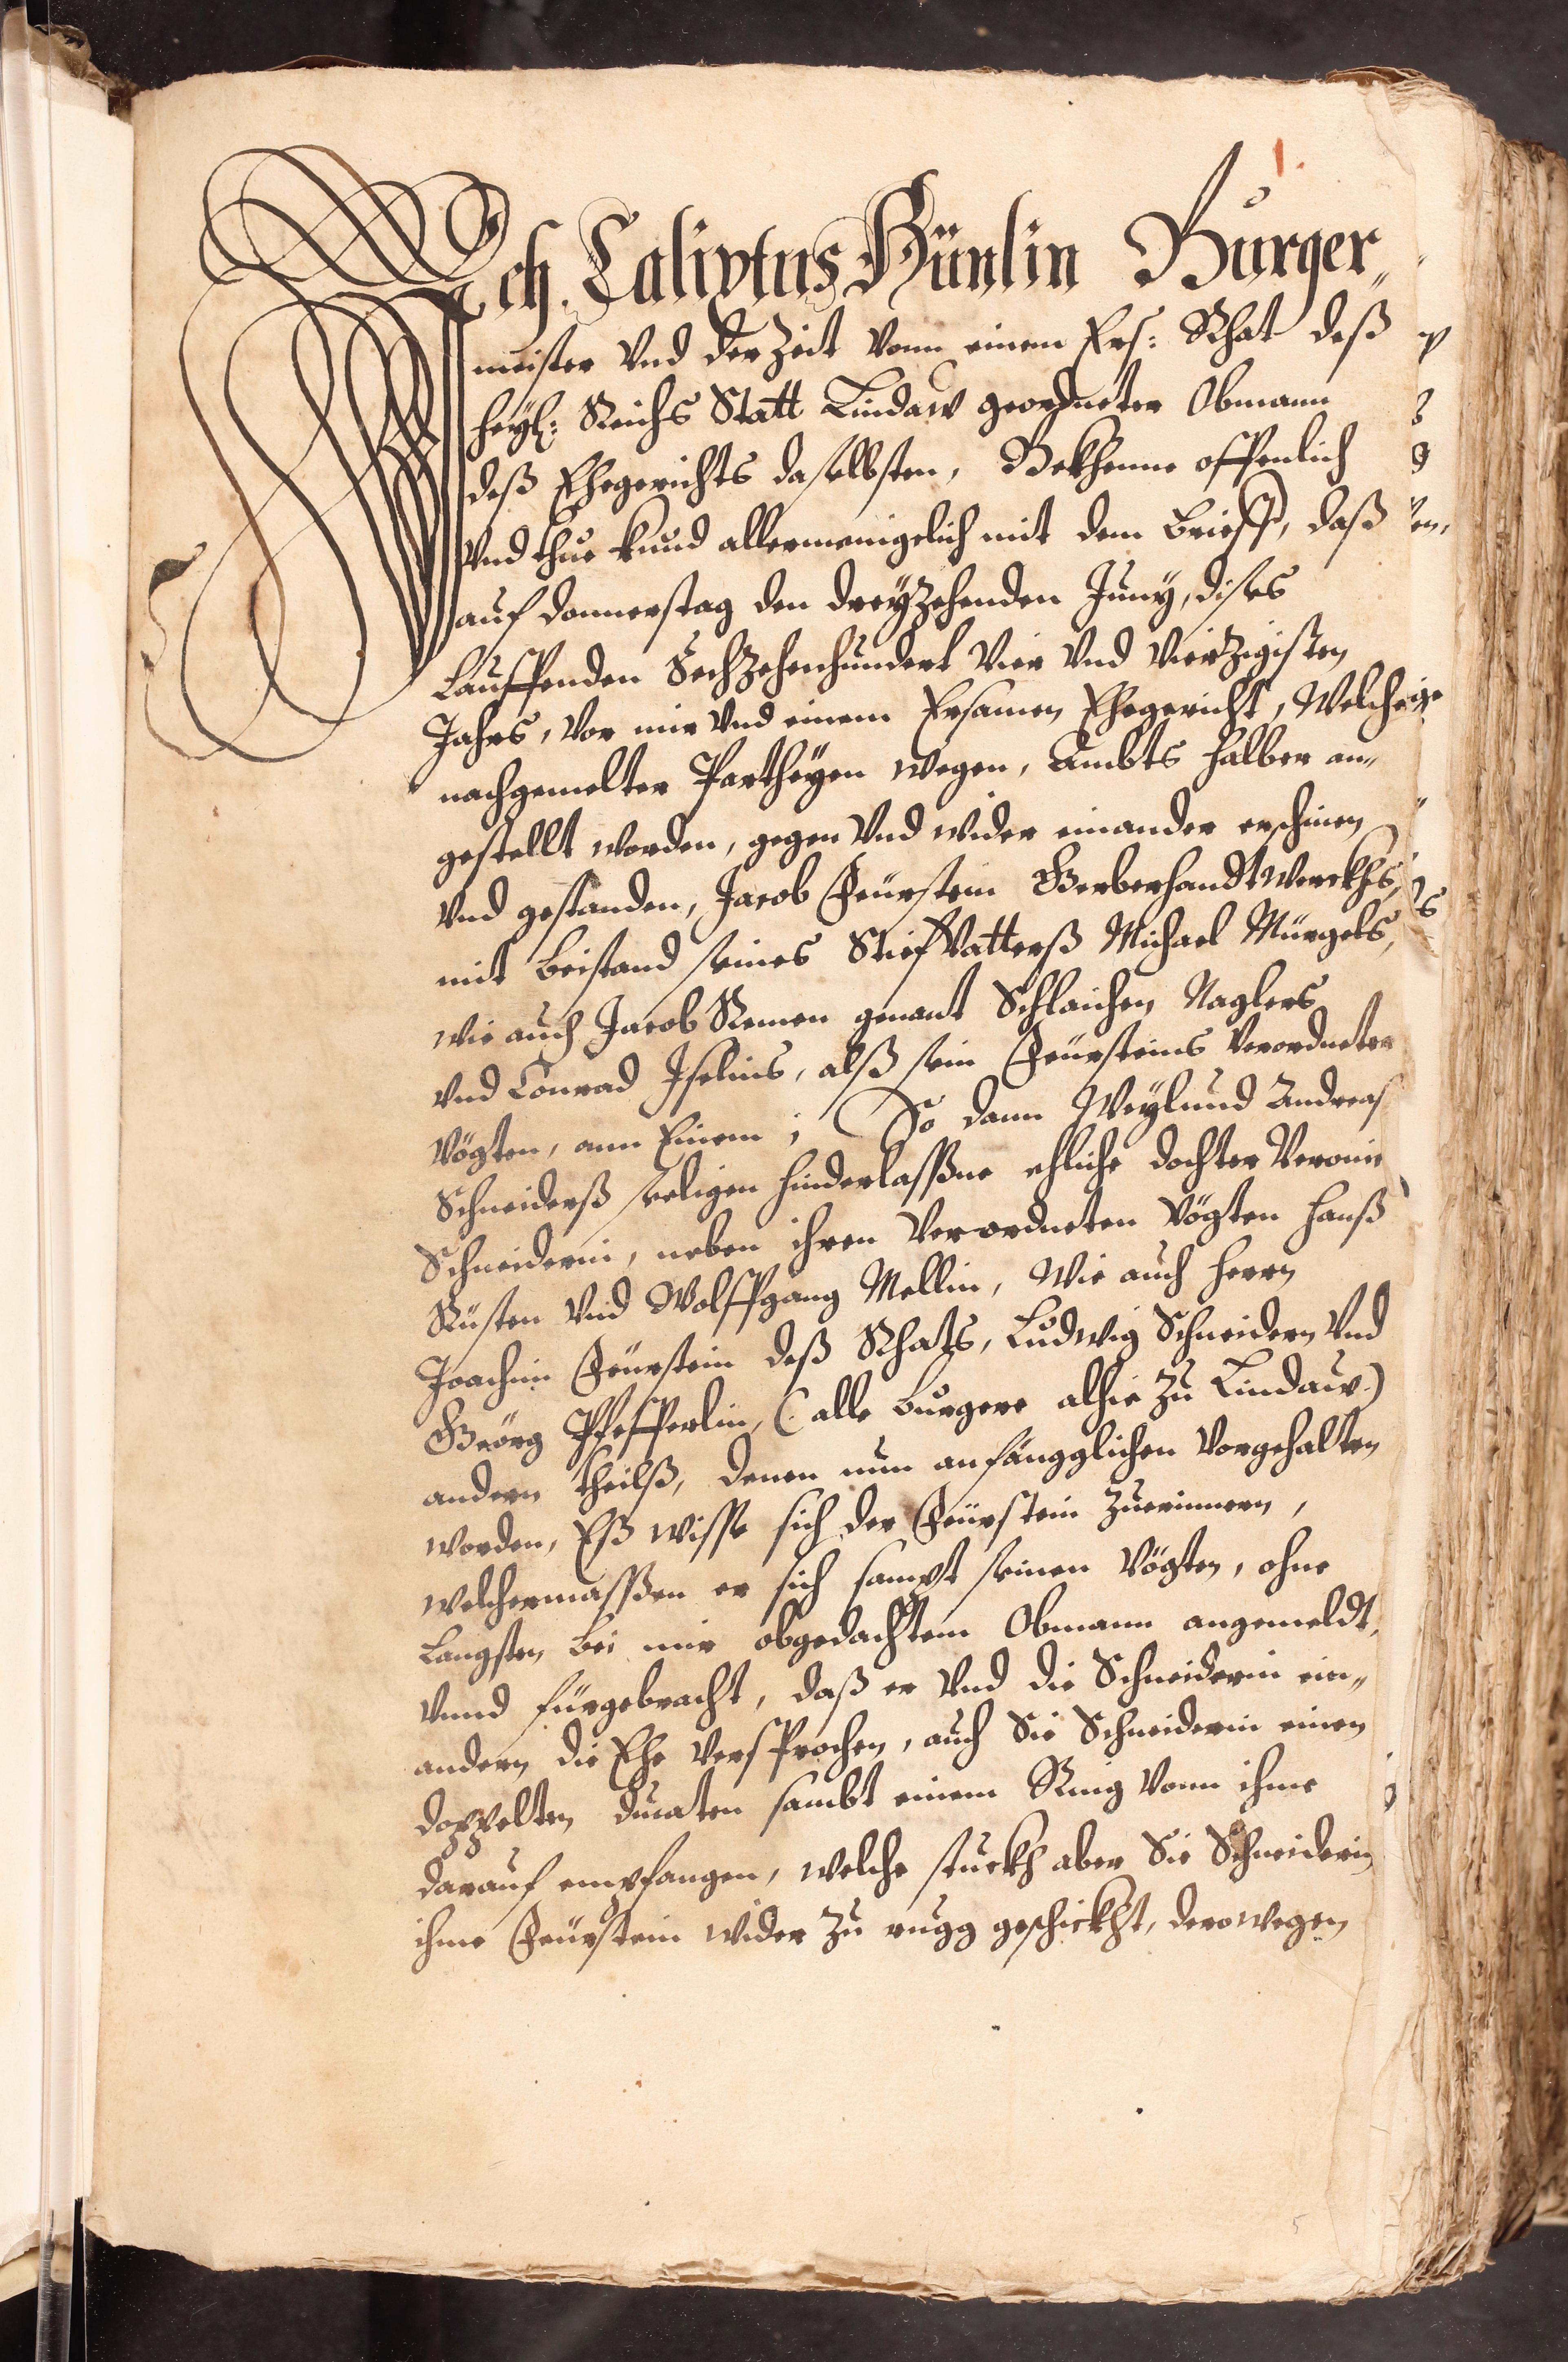 1.
Ich Calixtus Hünlin Burger„
meister vnd der Zeit vonn einem Ers: Rhat deß
heyl: Reichs Statt Lindaw geordneter Obmann
deß Ehegerichts daselbsten, Bekhenne offenlich
vnd thue kund allermenigelich mit dem brieff, daß
auf donnerstag den dreyzehenden Juny, dises
lauffenden Sechzehenhundert vier vnd vierzigisten
Jahrs, vor mir vnd einem Ersamen Ehegericht, Welches
nachgemelter Partheyen wegen, Ambts halber an„
gestellt worden, gegen vnd wider einander erschinen
vnd gestanden, Jacob Feürstein Gerberhandtwerckhs,
mit beistand seines Stiefvatterß Michael Mürgels,
wie auch Jacob Remen genant Schlaichen Naglers
vnd Conrad Iselins, alß sein Feürsteins verordneter
vögten, ann Einem; So dann Weylund Andreas
Schneiderß seeligen hinderlaßne ehliche dochter Veronie
Schneiderin, neben ihren verordneten vögten hanß
Küsten vnd Wolffgang Mellin, wie auch herrn
Joachim Feürstein deß Rhats, Ludwig Schneidern vnd
Geörg Pfefferlin, (: alle burgere alhie zu Lindaw :)
andern theilß, denen nun anfängglichen vorgehalten
worden, Eß wisse sich der Feürstein zuerinnern,
welchermassßen er sich sampt seinen vögten, ohne
langsten bei mir obgedachtem Obmann angemeldt,
vnnd fürgebracht, daß er vnd die Schneiderin ein„
andern die Ehe versprochen, auch Sie Schneiderin einen
doppelten ducaten sambt einem Ring vonn ihme
darauf empfangen, welche stuckh aber Sie Schneiderin
ihme Feürstein wider zu rugg geschickht, derowegen
5